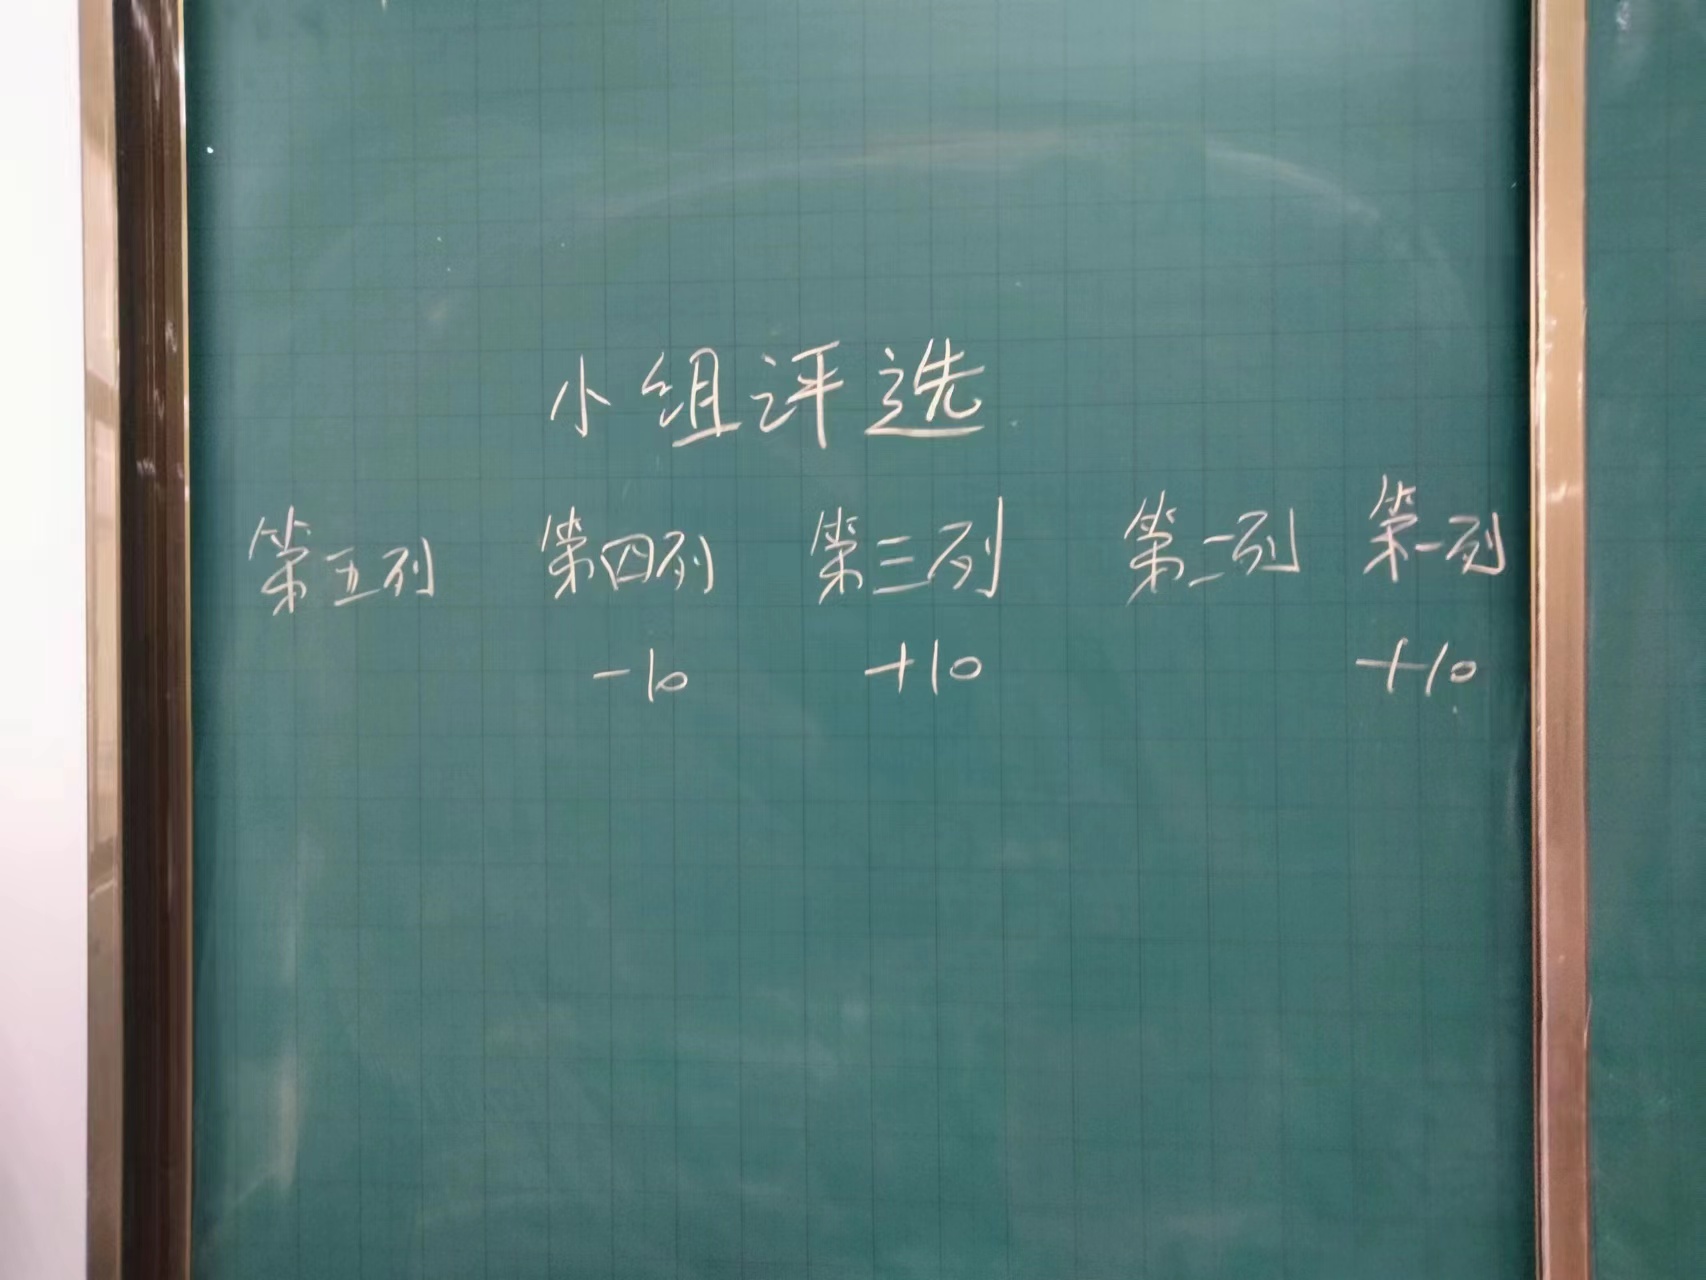 小组评选
第五列 第四列 第三列 第二列 第一列
-10 +10 +10